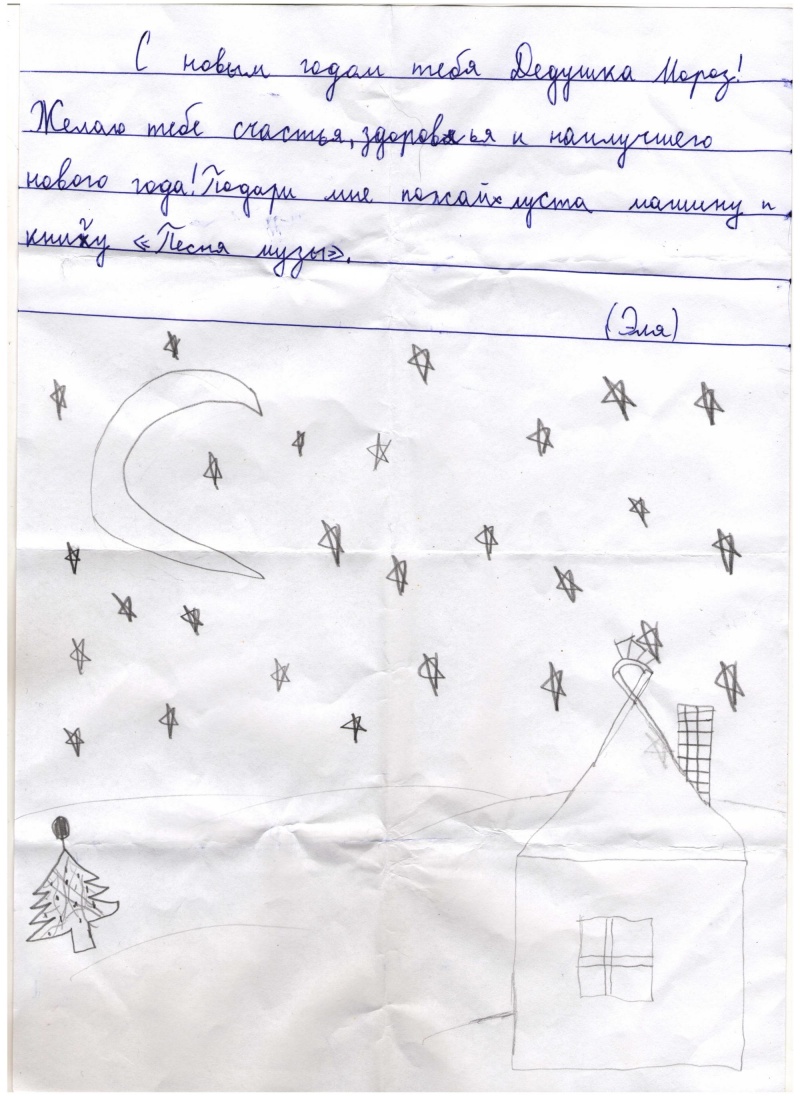 С новым годом тебя Дедушка Мороз!
Желаю тебе счастья, здоровья и наилучшего
нового года! Подари мне пожайлуста машину и
книжу «Песня музы».
(Эля)